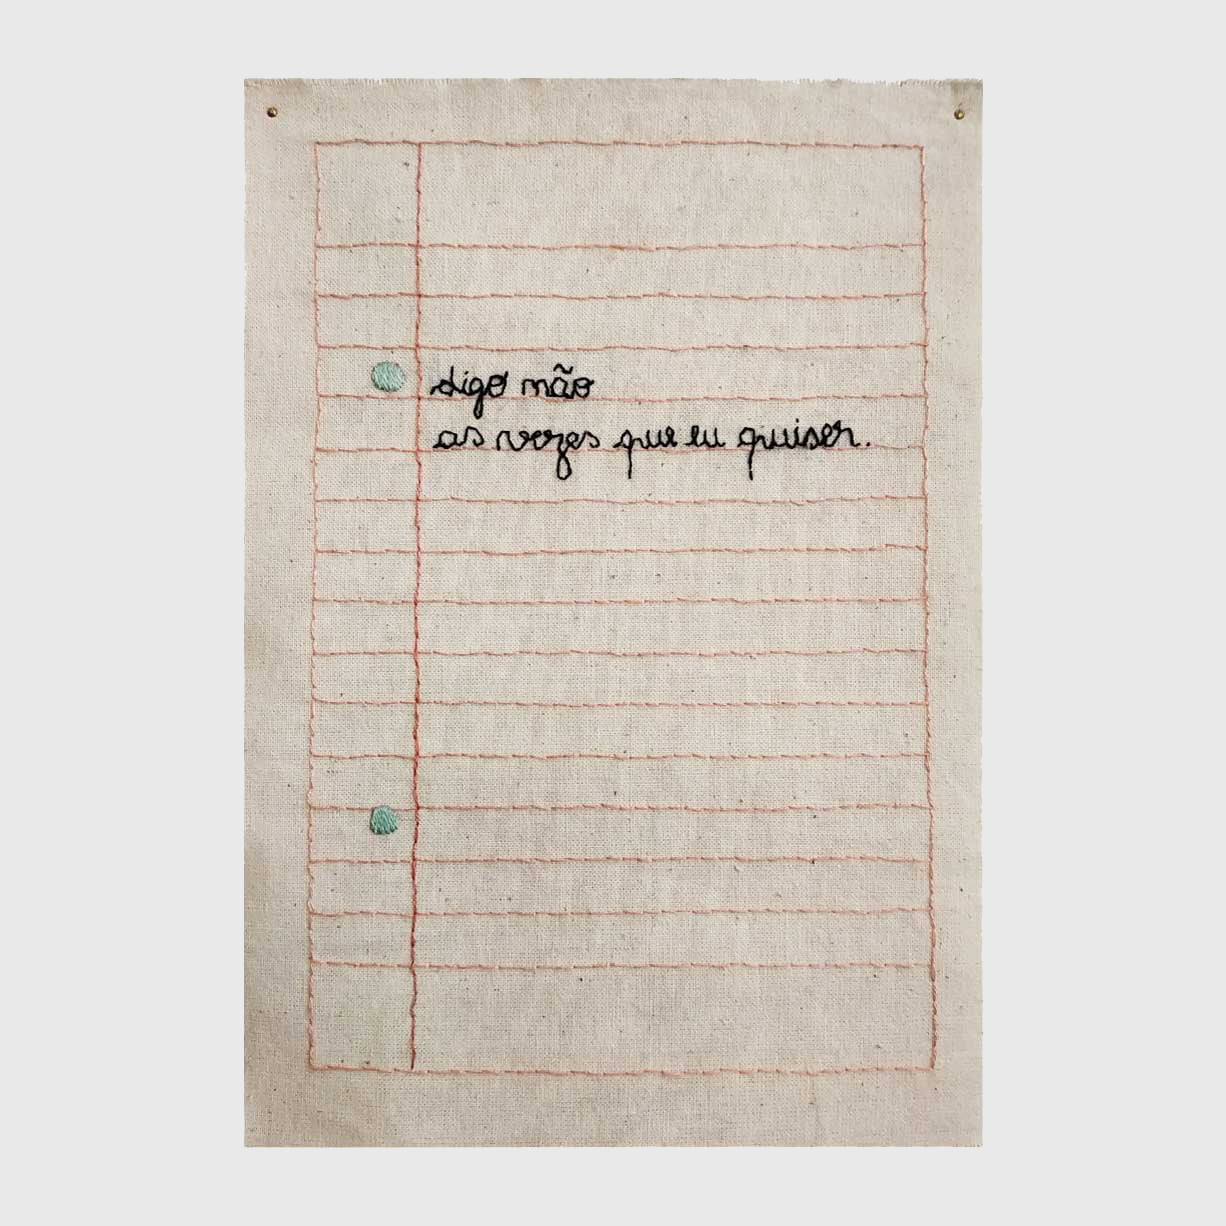 digo não
as vezes que eu quiser.